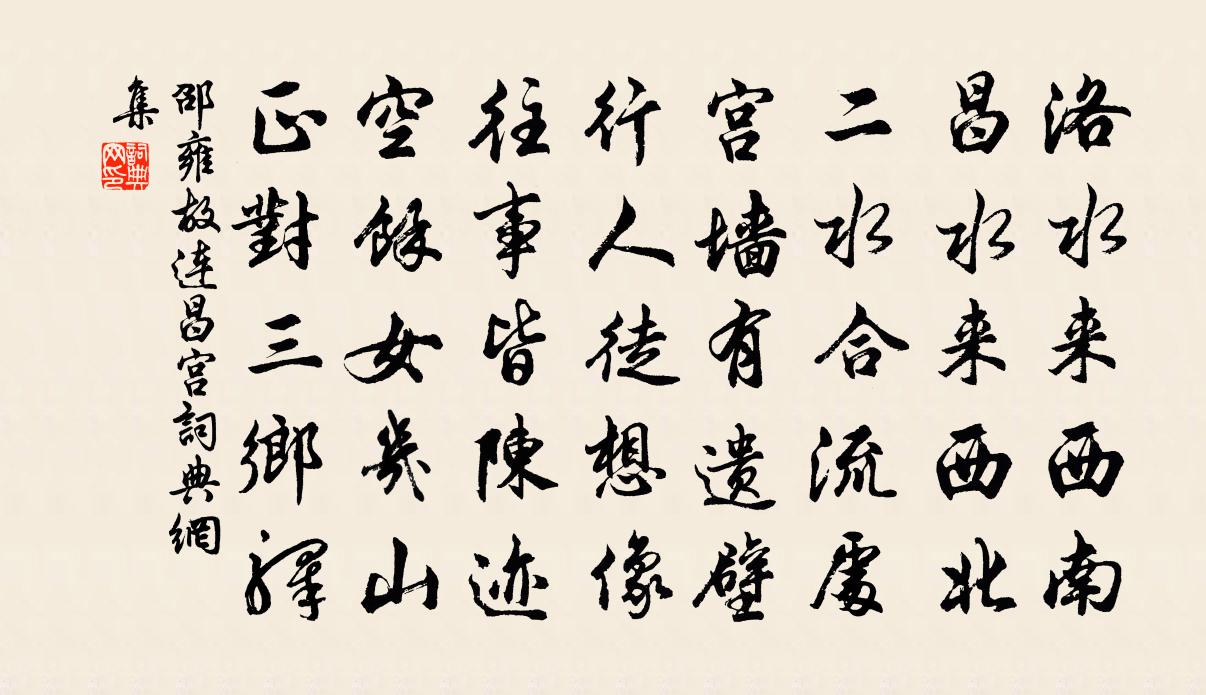 洛水来西南
昌水来西北
二水合流處
宫墙有遗壁
行人徒想像
往事皆陳迹
空餘女几山
正對三鄉驛
邵雍故連昌宫詞典網
集
詞典網印